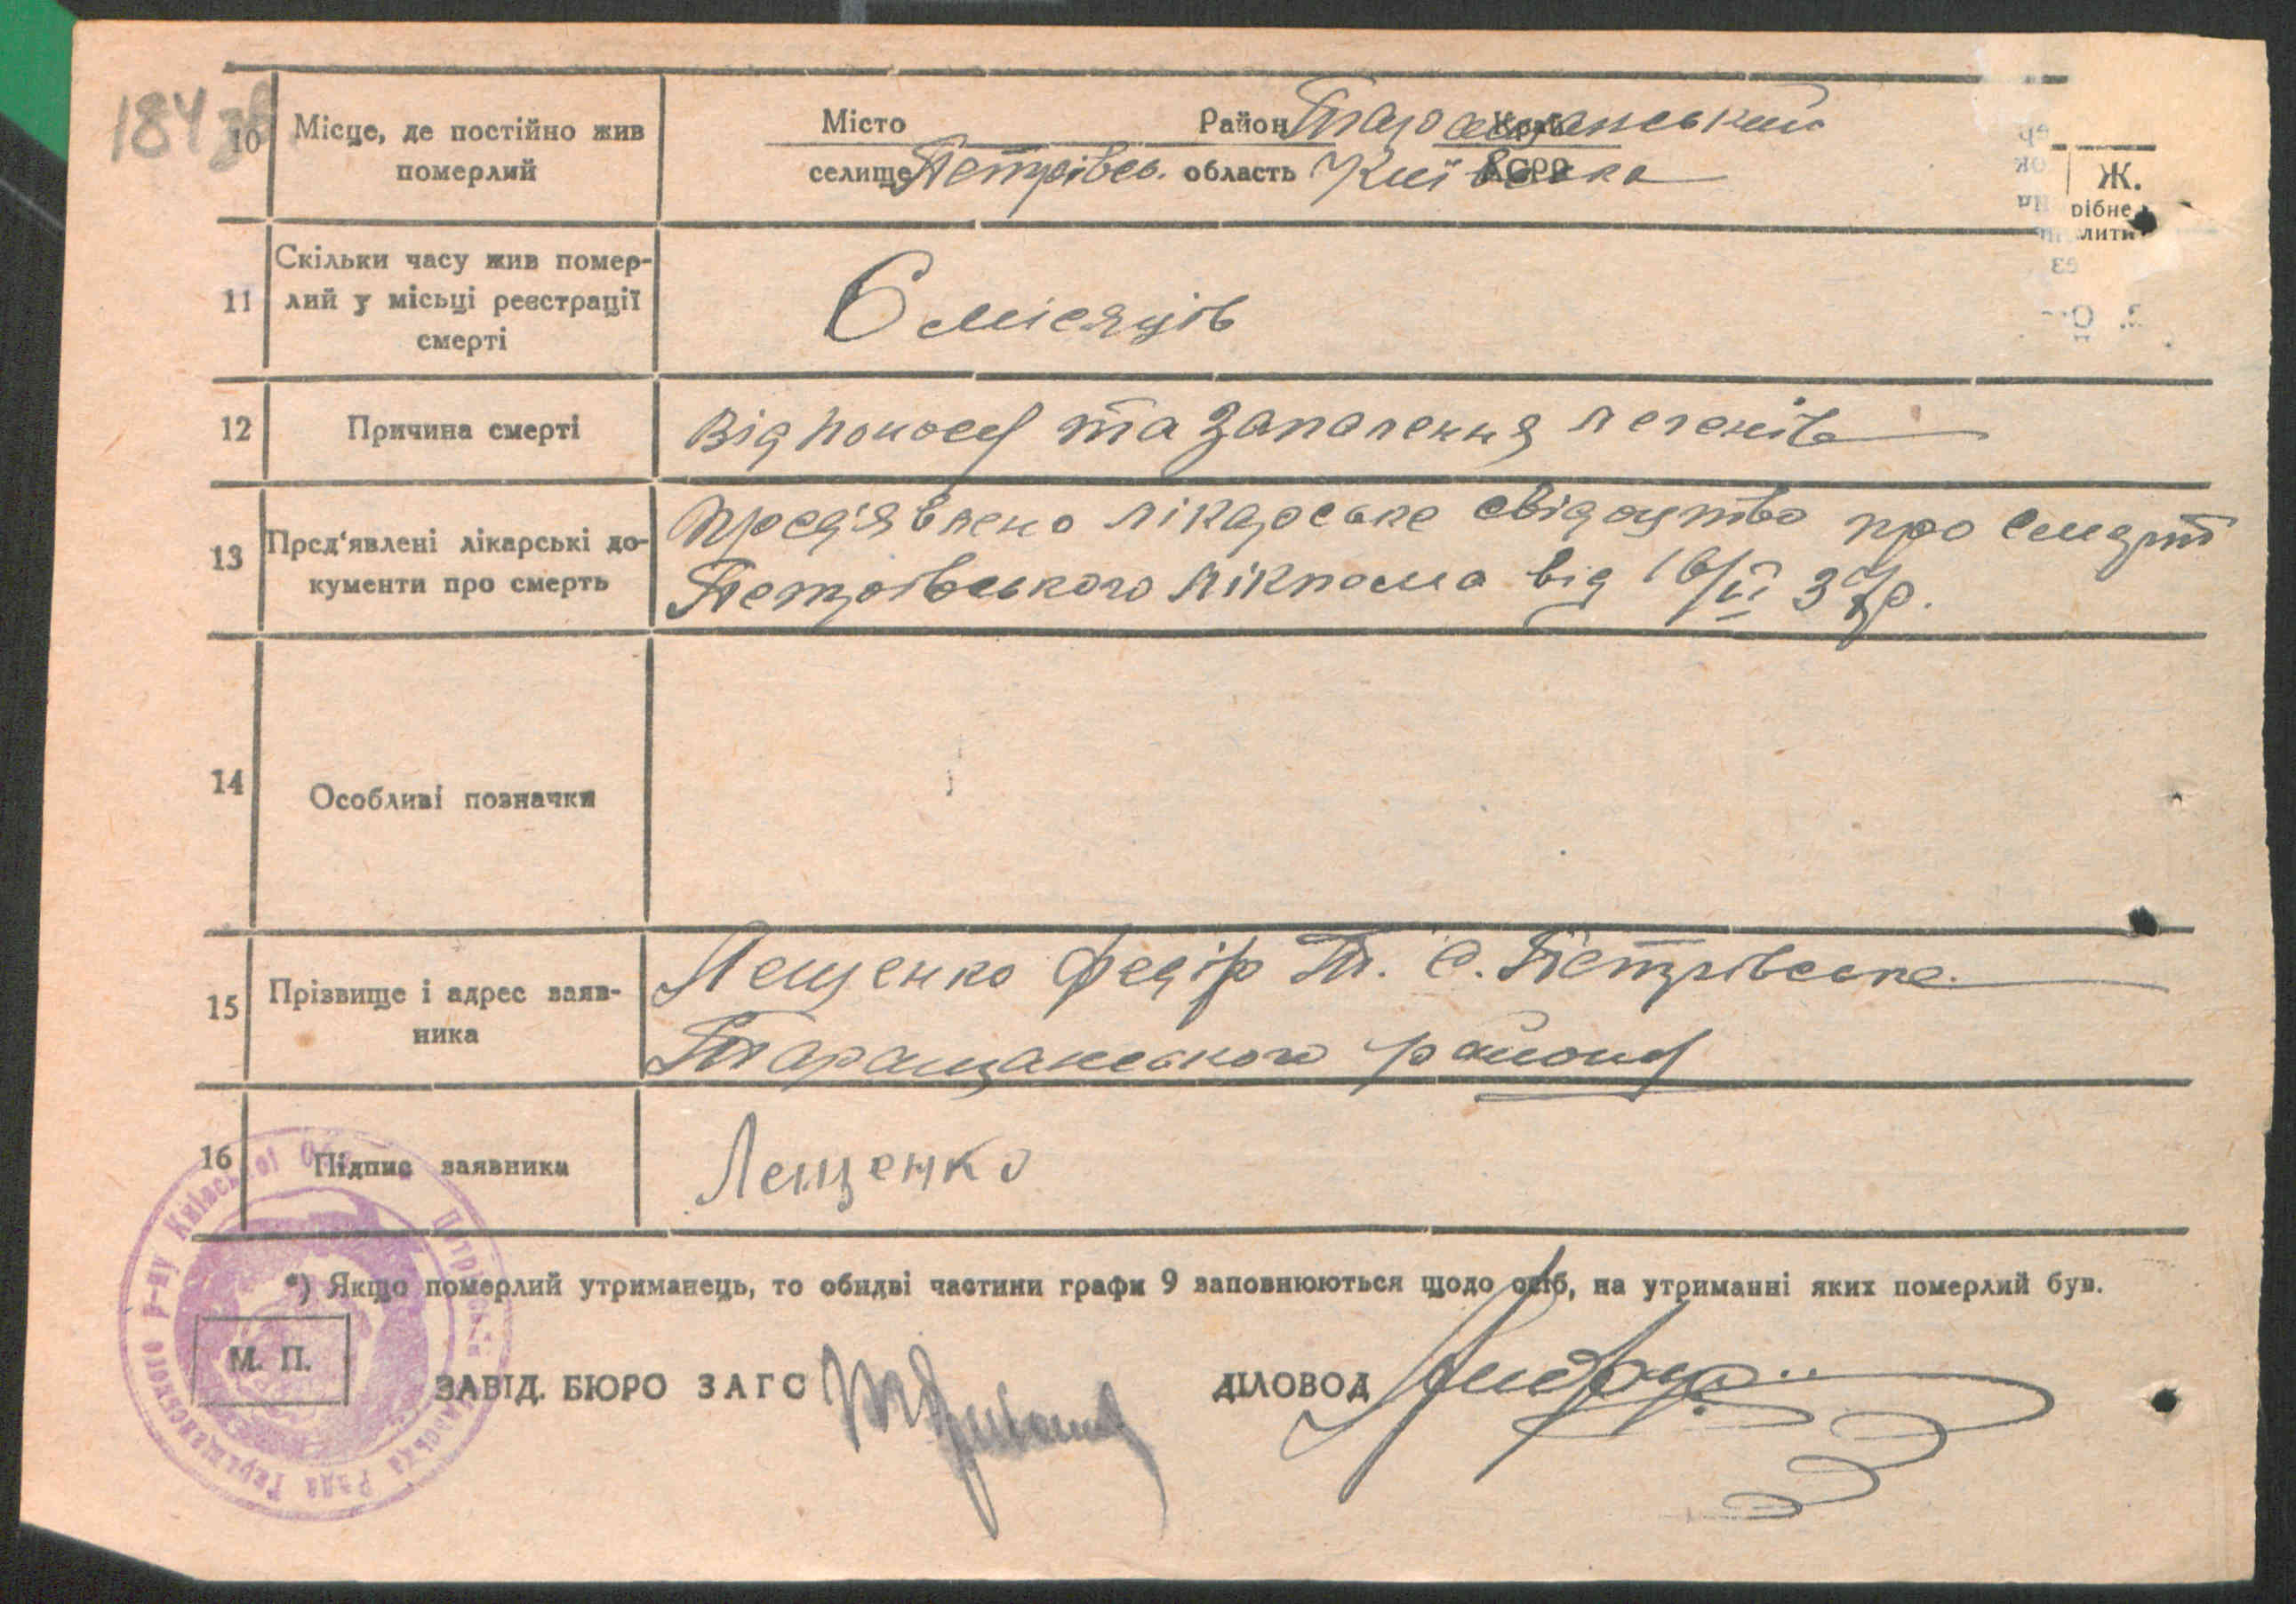 184 зв
10 Місце, де постійно жив померлий
Місто Район Таращанський Край
селище Петрівсь. область Київська АСРР
Ж.
рібне
лити
11 Скільки часу жив помер-
лий у місьці реєстрації
смерті
6 місяців
12 Причина смерті
Від поносу та запалення легенів
13 Пред'явлені лікарські до-
кументи про смерть
Пред'явлено лікарське свідоцтво про смерт
Петрівського лікпома від 16/VI 37р.
14 Особливі позначки
15 Прізвище і адрес заяв-
ника
Лещенко Федір Т. С. Петрівське
Таращанського району
16 Підпис заявника
Лещенко
*) Якщо померлий утриманець, то обидві частини графи 9 заповнюються щодо осіб, на утриманні яких померлий був.
М. П.
ЗАВІД. БЮРО ЗАГС
ДІЛОВОД
Рада Таращанського р-ну Київської Обл.